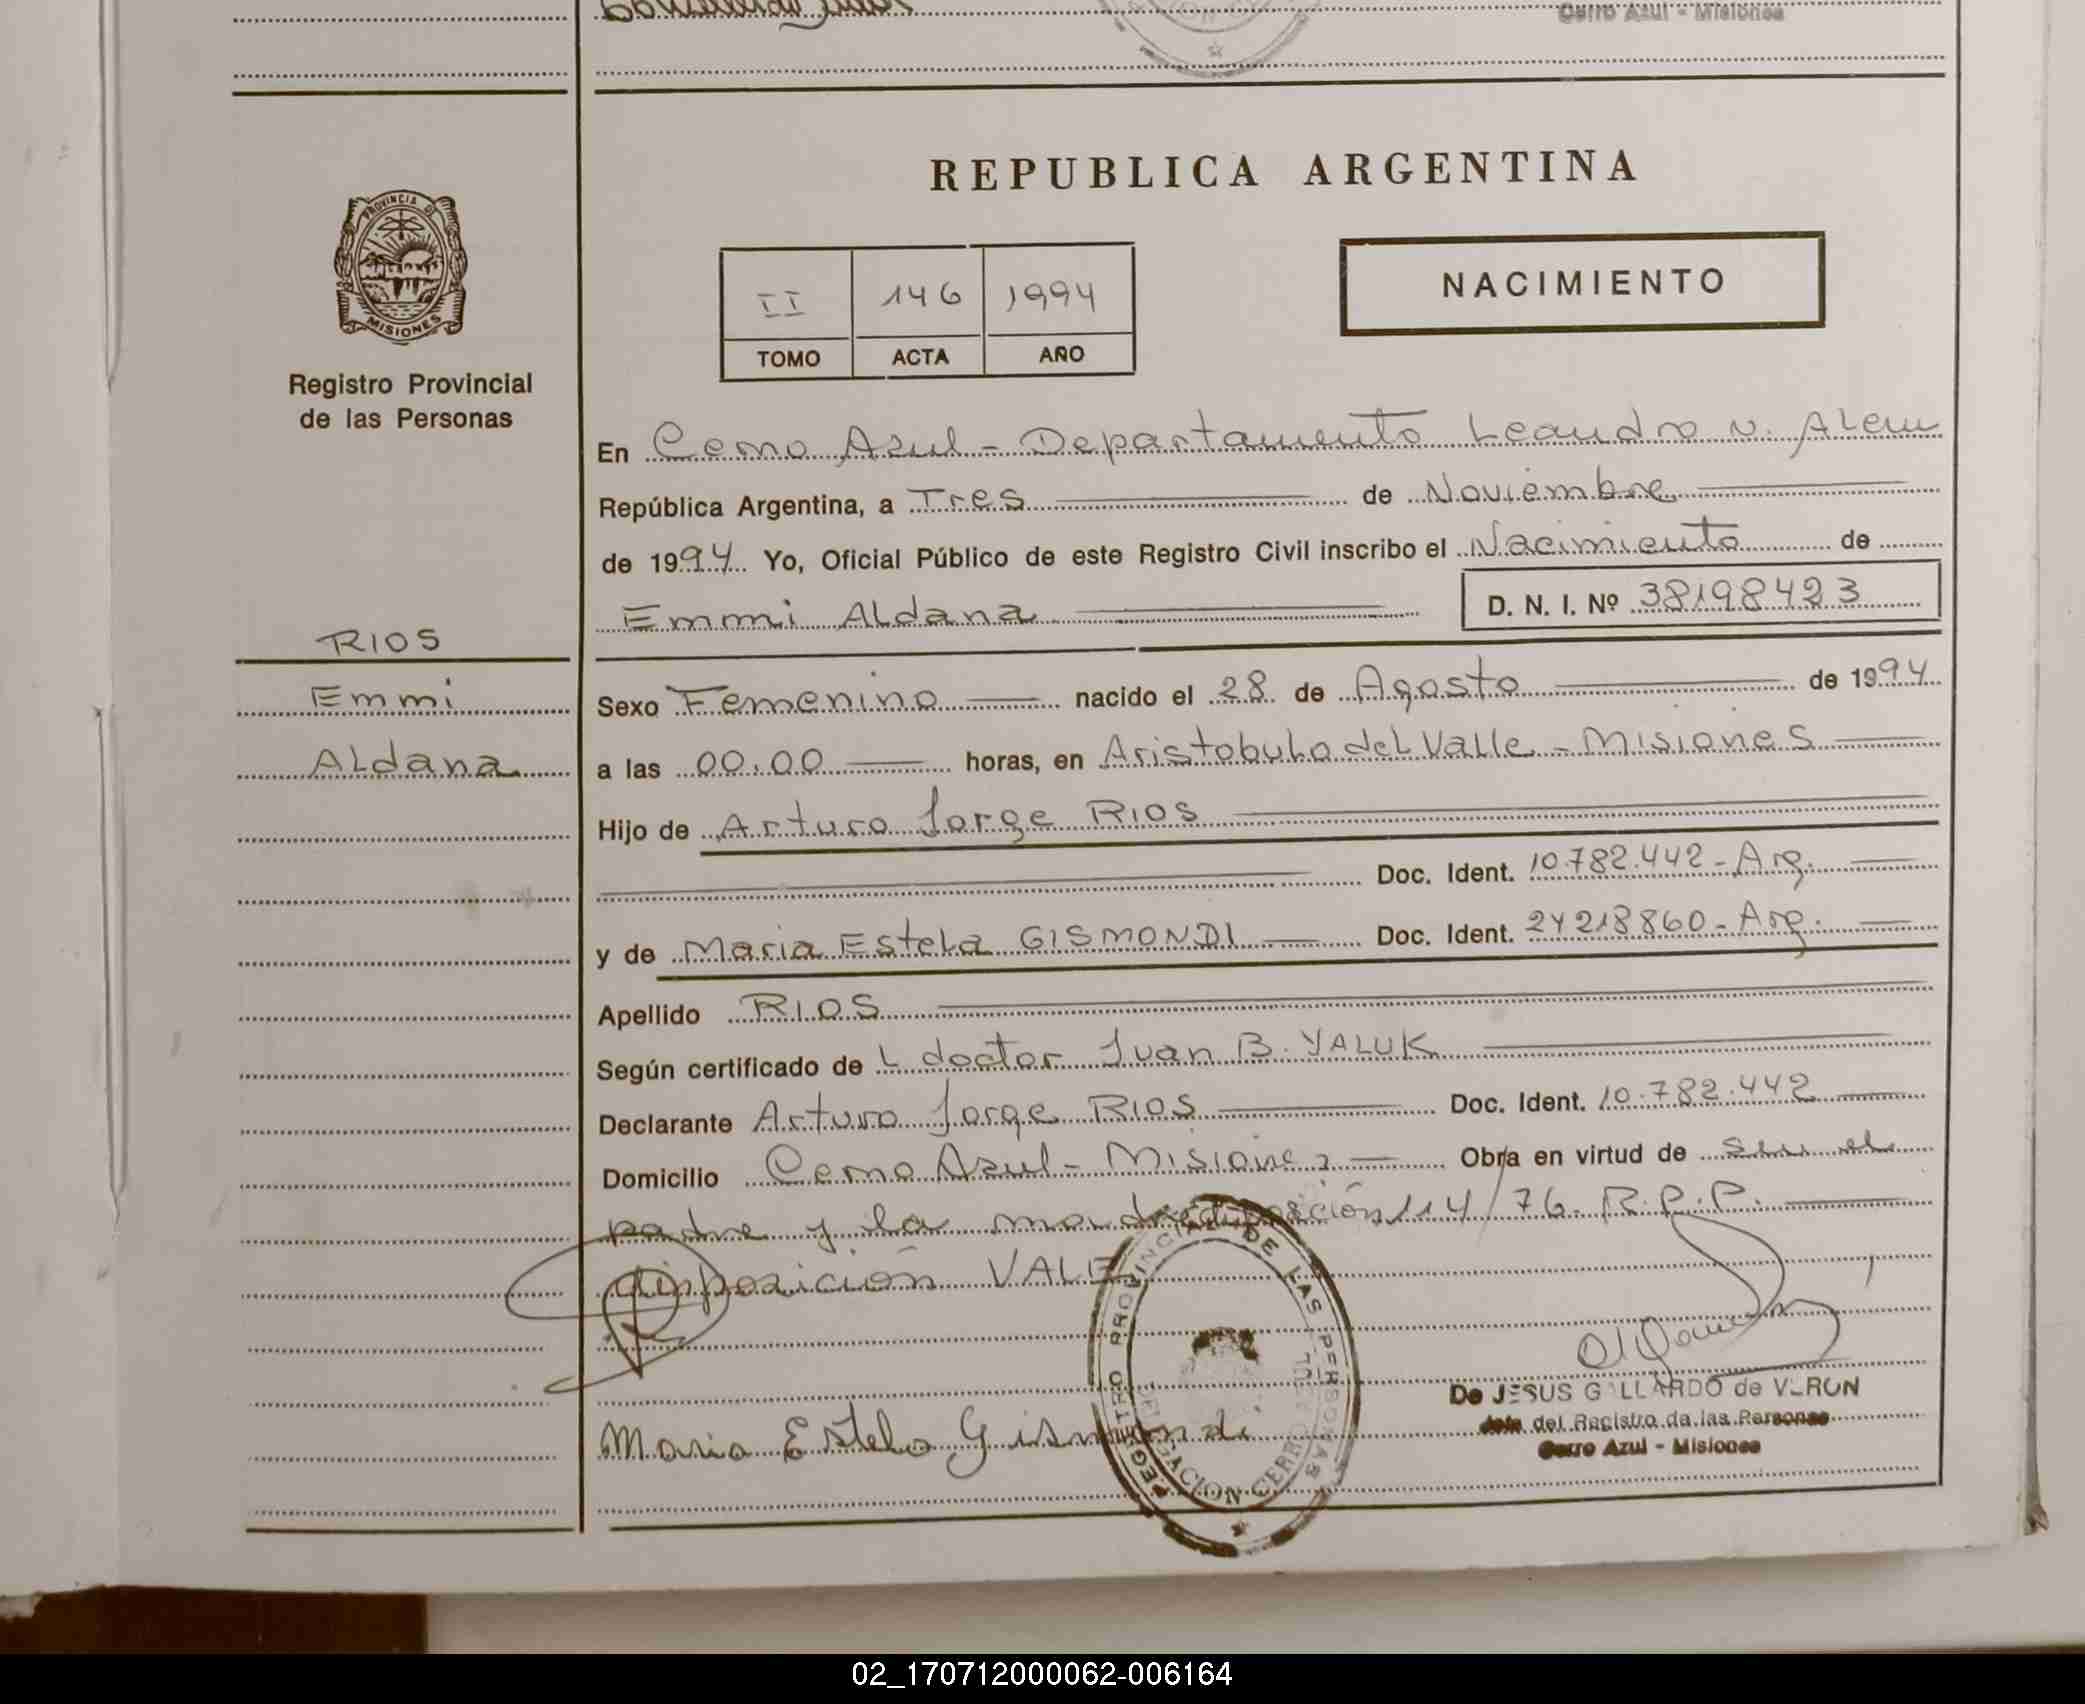 Cerro Azul - Misiones
REPUBLICA ARGENTINA
PROVINCIA DE
MISIONES
Registro Provincial
de las Personas
II 146 1994
TOMO ACTA AÑO
NACIMIENTO
En Cerro Azul - Departamento Leandro N. Alem
República Argentina, a Tres de Noviembre
de 1994 Yo, Oficial Público de este Registro Civil inscribo el Nacimiento de
Emmi Aldana D. N. I. Nº 38198423
RIOS
Emmi
Aldana
Sexo Femenino nacido el 28 de Agosto de 1994
a las 00.00 horas, en Aristobulo del Valle - Misiones
Hijo de Arturo Jorge RIOS
Doc. Ident. 10.782.442 - Arg.
y de Maria Estela GISMONDI Doc. Ident. 24218860 - Arg.
Apellido RIOS
Según certificado de L doctor Juan B. YALUK
Declarante Arturo Jorge RIOS Doc. Ident. 10.782.442
Domicilio Cerro Azul - Misiones Obra en virtud de ser el
padre y la madre disposición 114/76. R.P.P.
disposición VALE
REGISTRO PROVINCIAL DE LAS PERSONAS
Maria Estela Gismondi
De JESUS GALLARDO de VERON
Jefe del Registro de las Personas
Cerro Azul - Misiones
02_170712000062-006164